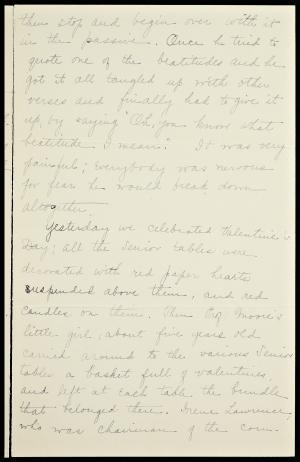 then stop and begin over with it
in the passive. Once he tried to
quote one of the beatitudes and he
got it all tangled up with other
verses and finally had to give it
up, by saying "Oh, you know what
beatitude I mean." It was very
painful; everybody was nervous
for fear he would break down
altogether.
Yesterday we celebrated Valentine's
Day; all the Senior tables were
decorated with red paper hearts
suspended above them, and red
candles on them. Then Prof. Moore's
little girl, about five years old
carried around to the various Senior
tables a basket full of valentines,
and left at each table the bundle
that belonged there. Irene Lawrence,
who was chairman of the com-